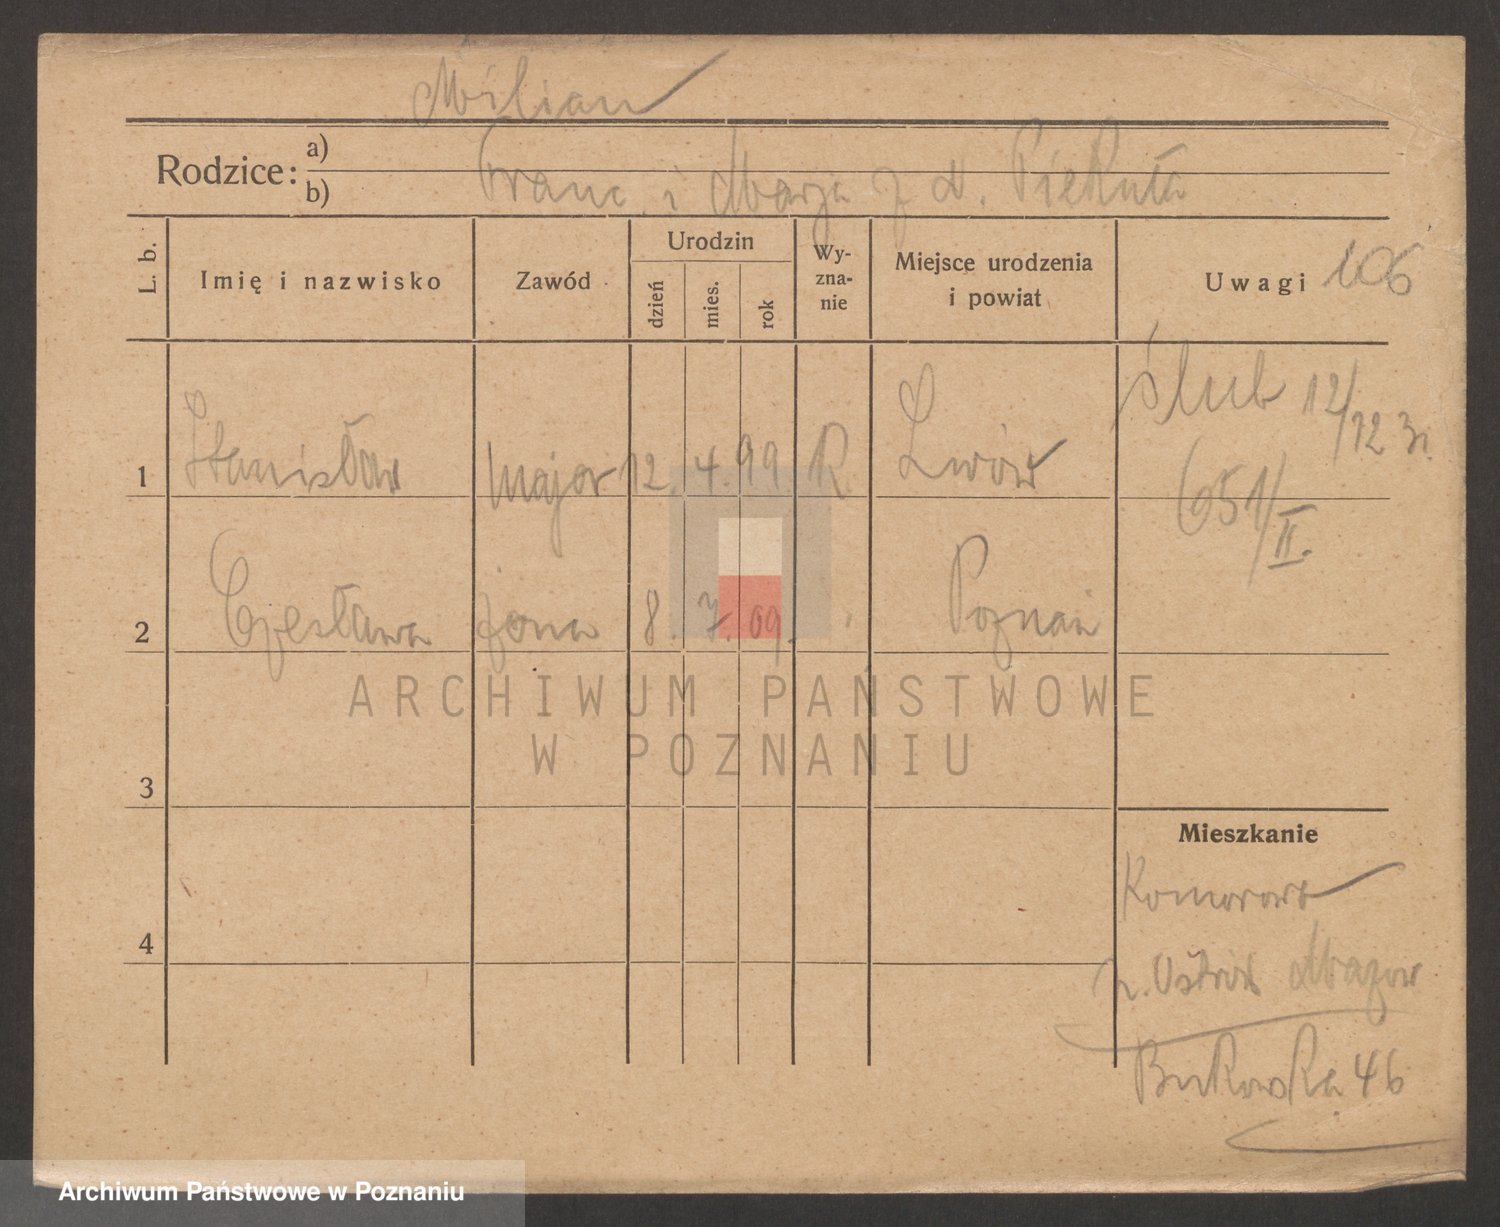 Milian
Rodzice: a)
b) Franc. i Marja z d. Piekuta
L. b. Imię i nazwisko Zawód Urodzin dzień mies. rok Wy-zna-nie Miejsce urodzenia i powiat Uwagi 106
1 Stanisław major 12. 4. 99 R. Lwów ślub 12/12 31.
651/II.
2 Czesława żona 8. 7. 09. Poznań
3
4
Mieszkanie
Komorowo
p. Ostrów Mazow
Bukowska 46
ARCHIWUM PAŃSTWOWE
W POZNANIU
Archiwum Państwowe w Poznaniu